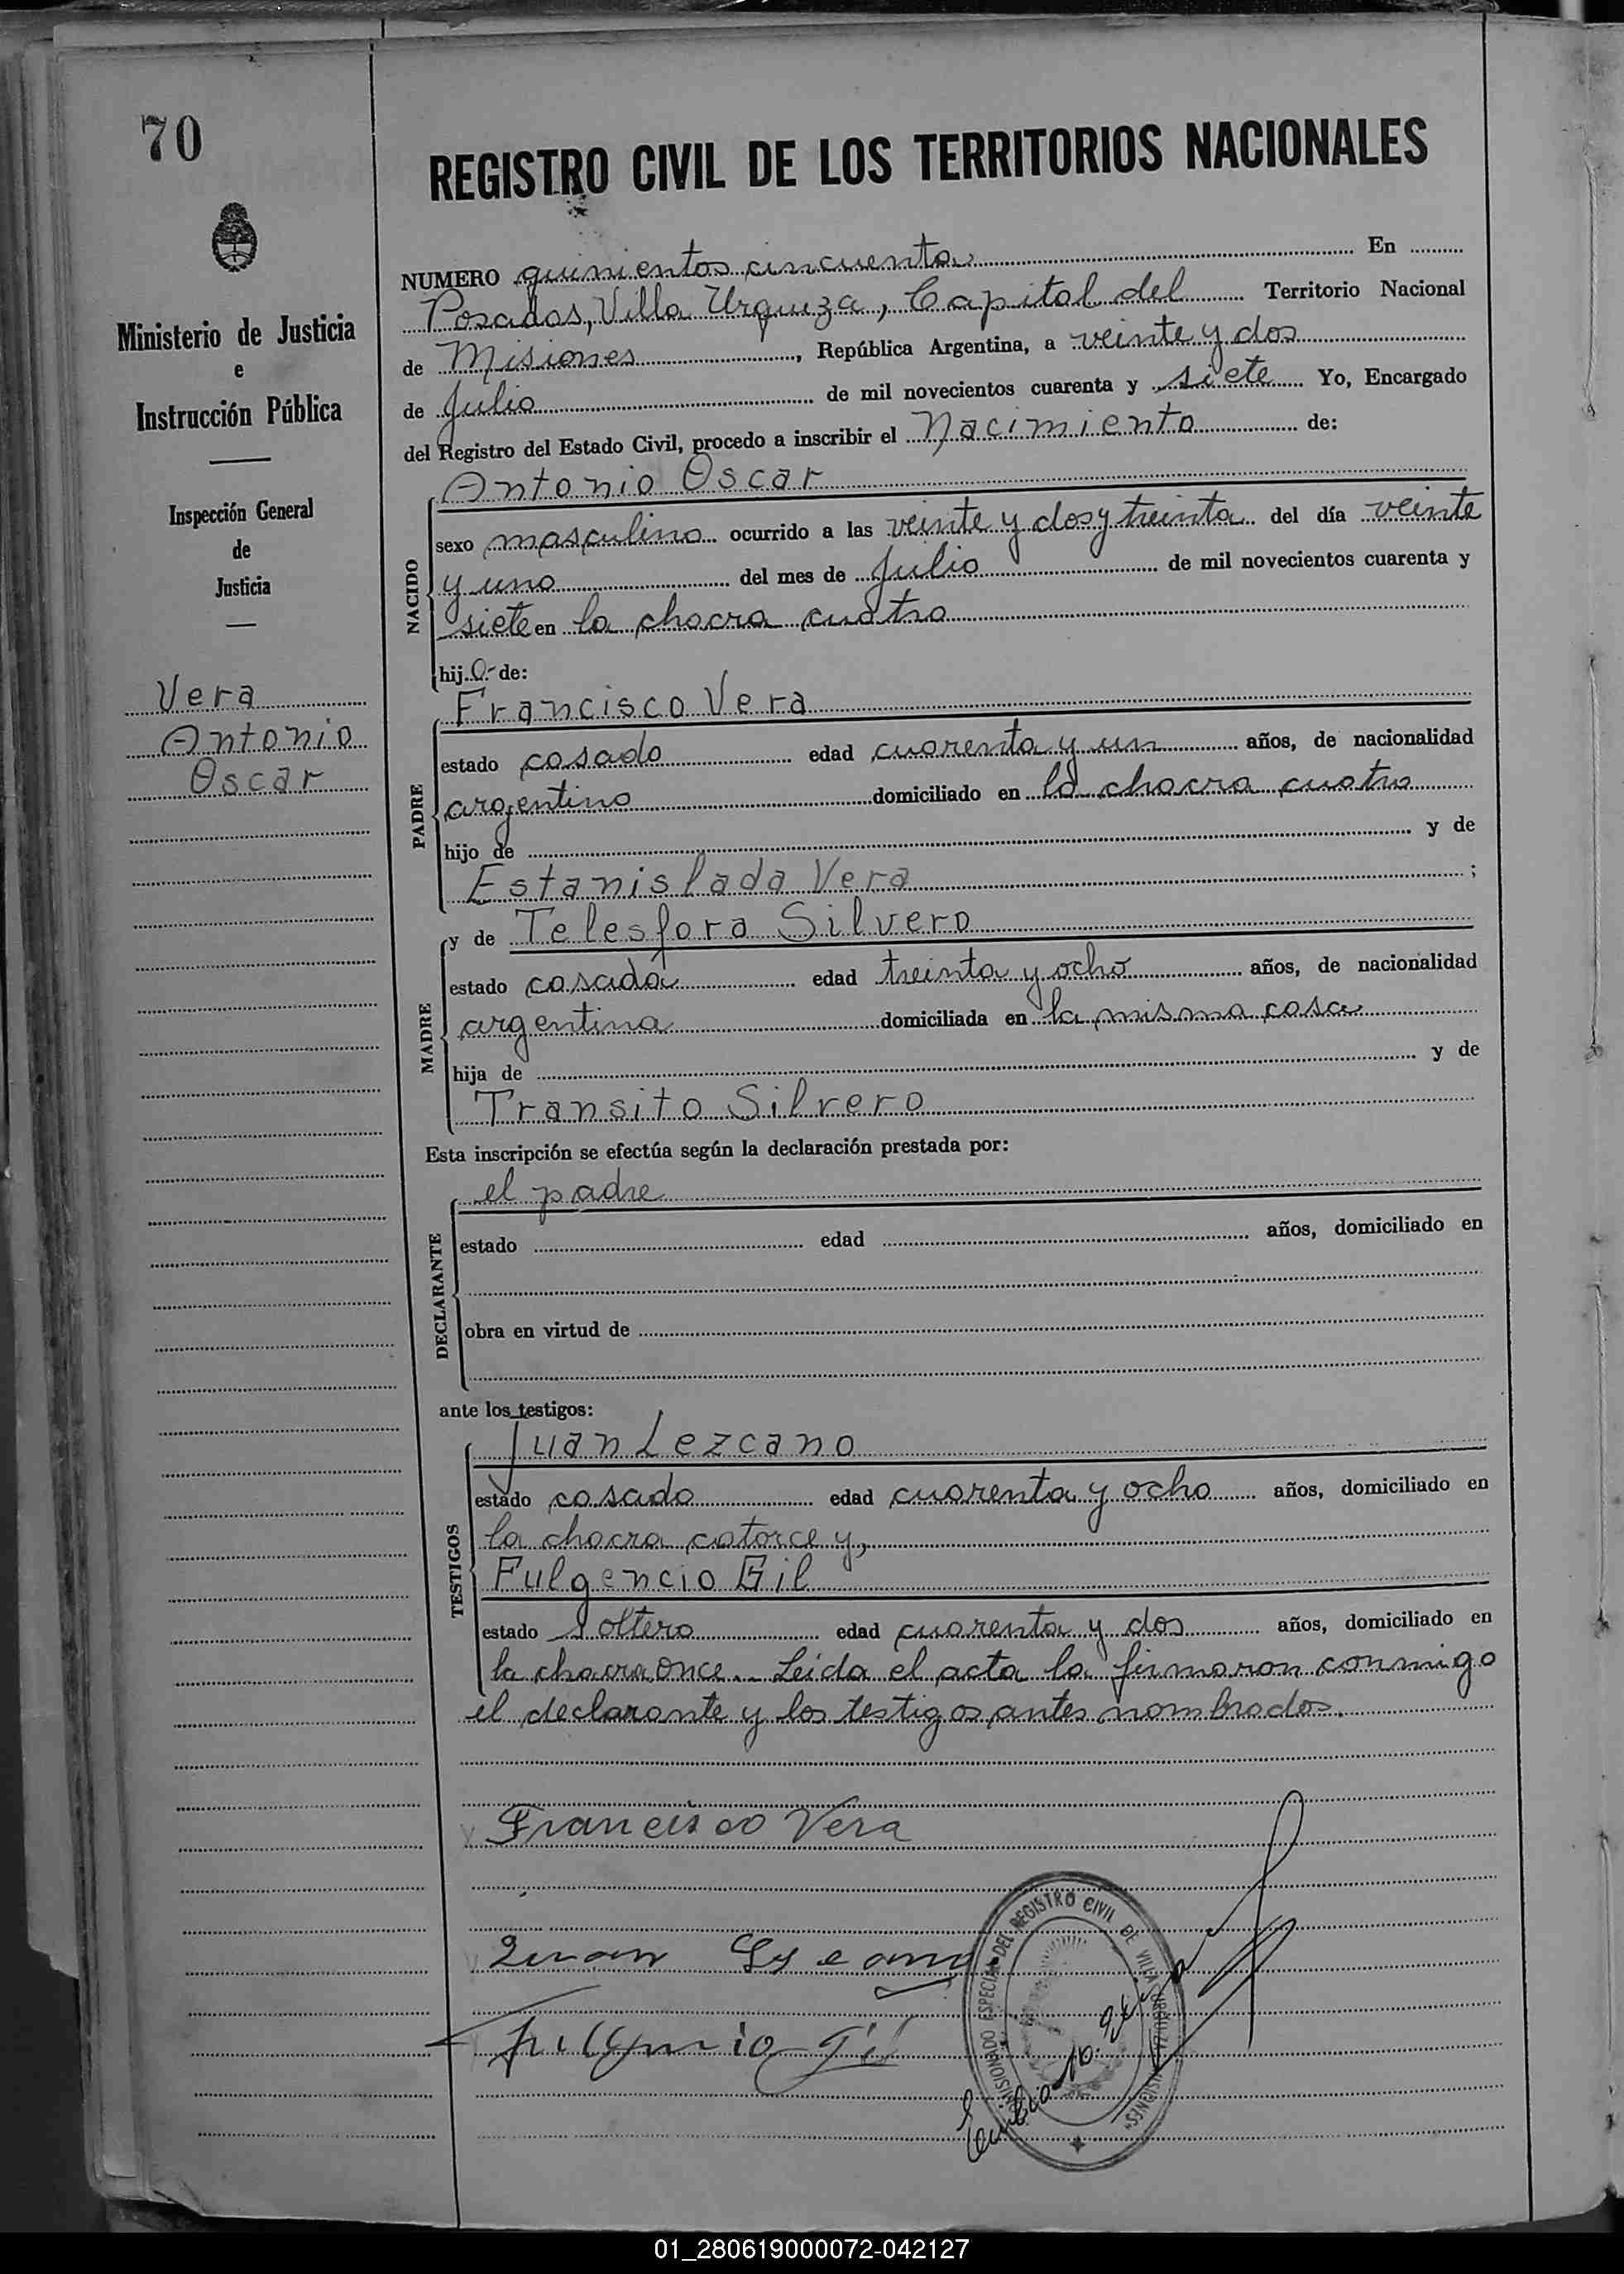 70
REGISTRO CIVIL DE LOS TERRITORIOS NACIONALES
Ministerio de Justicia
e
Instrucción Pública
Inspección General
de
Justicia
Vera
Antonio
Oscar
NUMERO quinientos cincuenta En
Posadas, Villa Urquiza, Capital del Territorio Nacional
de Misiones, República Argentina, a veinte y dos
de Julio de mil novecientos cuarenta y siete Yo, Encargado
del Registro del Estado Civil, procedo a inscribir el Nacimiento de:
NACIDO
Antonio Oscar
sexo masculino ocurrido a las veinte y dos y treinta del día veinte
y uno del mes de Julio de mil novecientos cuarenta y
siete en la chacra cuatro
hijo de:
PADRE
Francisco Vera
estado casado edad cuarenta y un años, de nacionalidad
argentino domiciliado en la chacra cuatro
hijo de y de
Estanislada Vera ;
MADRE
y de Telesfora Silvero
estado casada edad treinta y ocho años, de nacionalidad
argentina domiciliada en la misma casa
hija de y de
Transito Silvero
Esta inscripción se efectúa según la declaración prestada por:
DECLARANTE
el padre
estado edad años, domiciliado en
obra en virtud de
ante los testigos:
TESTIGOS
Juan Lezcano
estado casado edad cuarenta y ocho años, domiciliado en
la chacra catorce y,
Fulgencio Gil
estado soltero edad cuarenta y dos años, domiciliado en
la chacra once.- Leida el acta la firmaron conmigo
el declarante y los testigos antes nombrados.
Francisco Vera
Juan
Gil
ESPECIAL DEL REGISTRO CIVIL DE VILLA URQUIZA MISIONES
01_280619000072-042127